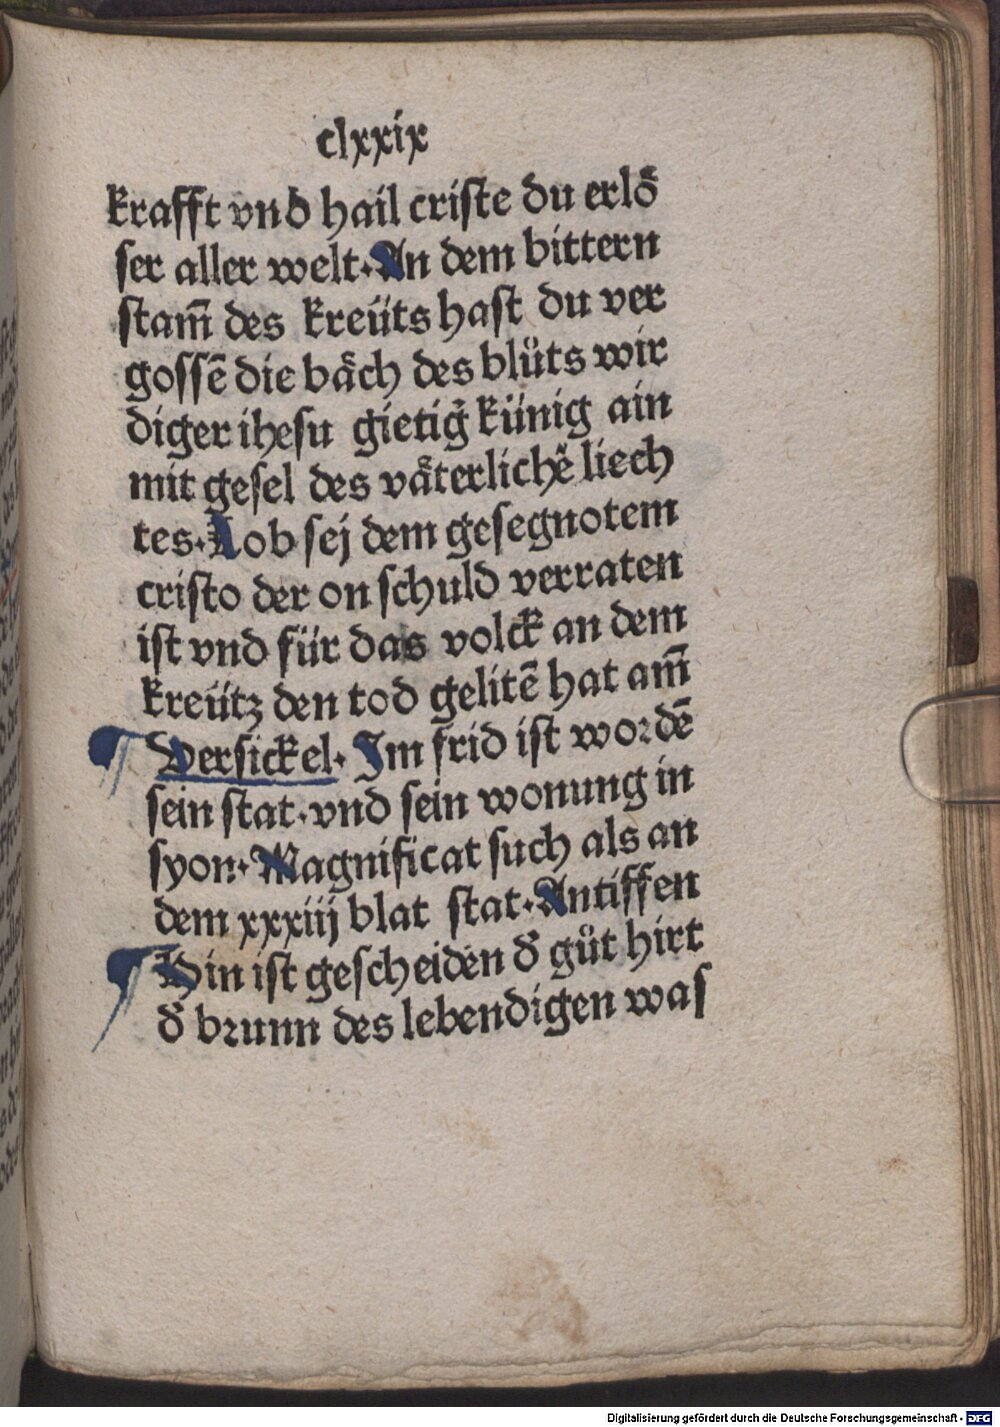 clxxix
krafft vnd hail criste du erlö
ser aller welt. An dem bittern
stam̄ des kreüts hast du ver
gossē die bäch des blůts wir
diger ihesu gietig̉ künig ain
mit gesel des väterlichē liech
tes. Lob sej dem gesegnotem
cristo der on schuld verraten
ist vnd für das volck an dem
kreütz den tod gelitē hat am̄
Versickel. Im frid ist wordē
sein stat. vnd sein wonung in
syon. Magnificat such als an
dem xxxiij blat stat. Antiffen
Hin ist gescheiden d̉ gůt hirt
d̉ brunn des lebendigen was
Digitalisierung gefördert durch die Deutsche Forschungsgemeinschaft - DFG